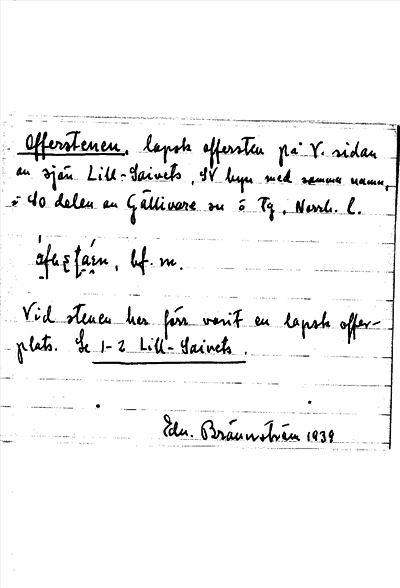 Offerstenen, lapsk offersten på V. sidan
av sjön Lill-Saivets, SV byn med samma namn,
i SO delen av Gällivare sn o Tg, Norrb. l.
bf. m.
Vid stenen har förr varit en lapsk offer-
plats. Se 1-2 Lill-Saivets.
Edv. Brännström 1939